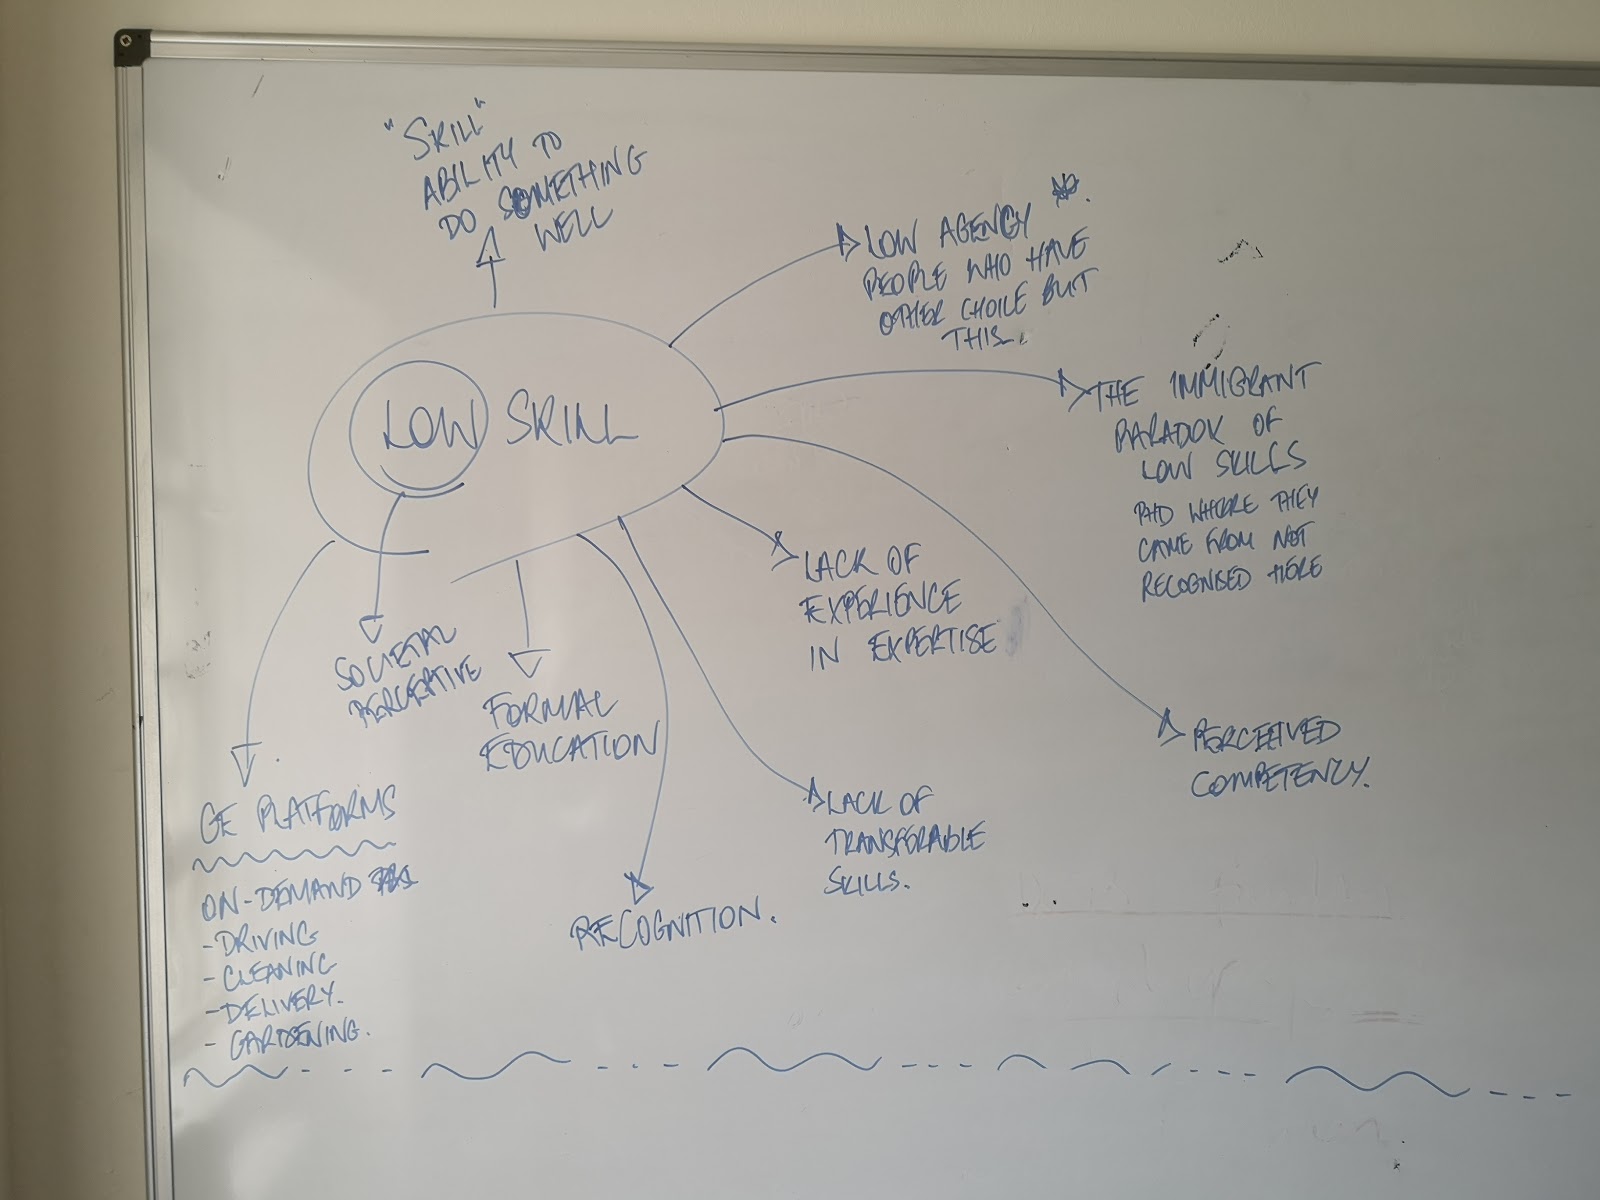 "SKILL"
ABILITY TO
DO SOMETHING
WELL
LOW SKILL
LOW AGENCY
PEOPLE WHO HAVE
OTHER CHOICE BUT
THIS.
THE IMMIGRANT
PARADOX OF
LOW SKILLS
PHD WHERE THEY
CAME FROM NOT
RECOGNISED HERE
LACK OF
EXPERIENCE
IN EXPERTISE
PERCEIVED
COMPETENCY.
SOCIETAL
PERCEPTIVE
FORMAL
EDUCATION
LACK OF
TRANSFERABLE
SKILLS.
RECOGNITION.
GE PLATFORMS
ON-DEMAND
- DRIVING
- CLEANING
- DELIVERY.
- GARDENING.